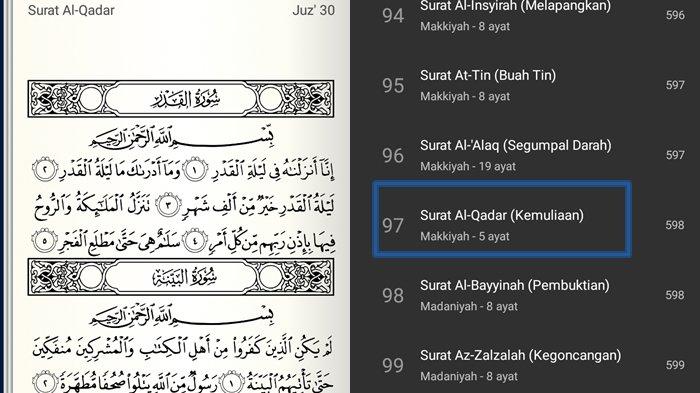 Surat Al-Qadar
Juz' 30
سُورَةُ الْقَدْرِ
بِسْمِ اللَّهِ الرَّحْمَٰنِ الرَّحِيمِ
إِنَّا أَنْزَلْنَاهُ فِي لَيْلَةِ الْقَدْرِ ١ وَمَا أَدْرَاكَ مَا لَيْلَةُ الْقَدْرِ ٢
لَيْلَةُ الْقَدْرِ خَيْرٌ مِّنْ أَلْفِ شَهْرٍ ٣ تَنَزَّلُ الْمَلَائِكَةُ وَالرُّوحُ
فِيهَا بِإِذْنِ رَبِّهِم مِّن كُلِّ أَمْرٍ ٤ سَلَامٌ هِيَ حَتَّىٰ مَطْلَعِ الْفَجْرِ ٥
سُورَةُ الْبَيِّنَةِ
بِسْمِ اللَّهِ الرَّحْمَٰنِ الرَّحِيمِ
لَمْ يَكُنِ الَّذِينَ كَفَرُوا مِنْ أَهْلِ الْكِتَابِ وَالْمُشْرِكِينَ مُنفَكِّينَ
حَتَّىٰ تَأْتِيَهُمُ الْبَيِّنَةُ ١ رَسُولٌ مِّنَ اللَّهِ يَتْلُو صُحُفًا مُّطَهَّرَةً ٢
94 Surat Al-Insyirah (Melapangkan) 596
Makkiyah - 8 ayat
95 Surat At-Tin (Buah Tin) 597
Makkiyah - 8 ayat
96 Surat Al-'Alaq (Segumpal Darah) 597
Makkiyah - 19 ayat
97 Surat Al-Qadar (Kemuliaan) 598
Makkiyah - 5 ayat
98 Surat Al-Bayyinah (Pembuktian) 598
Madaniyah - 8 ayat
99 Surat Az-Zalzalah (Kegoncangan) 599
Madaniyah - 8 ayat